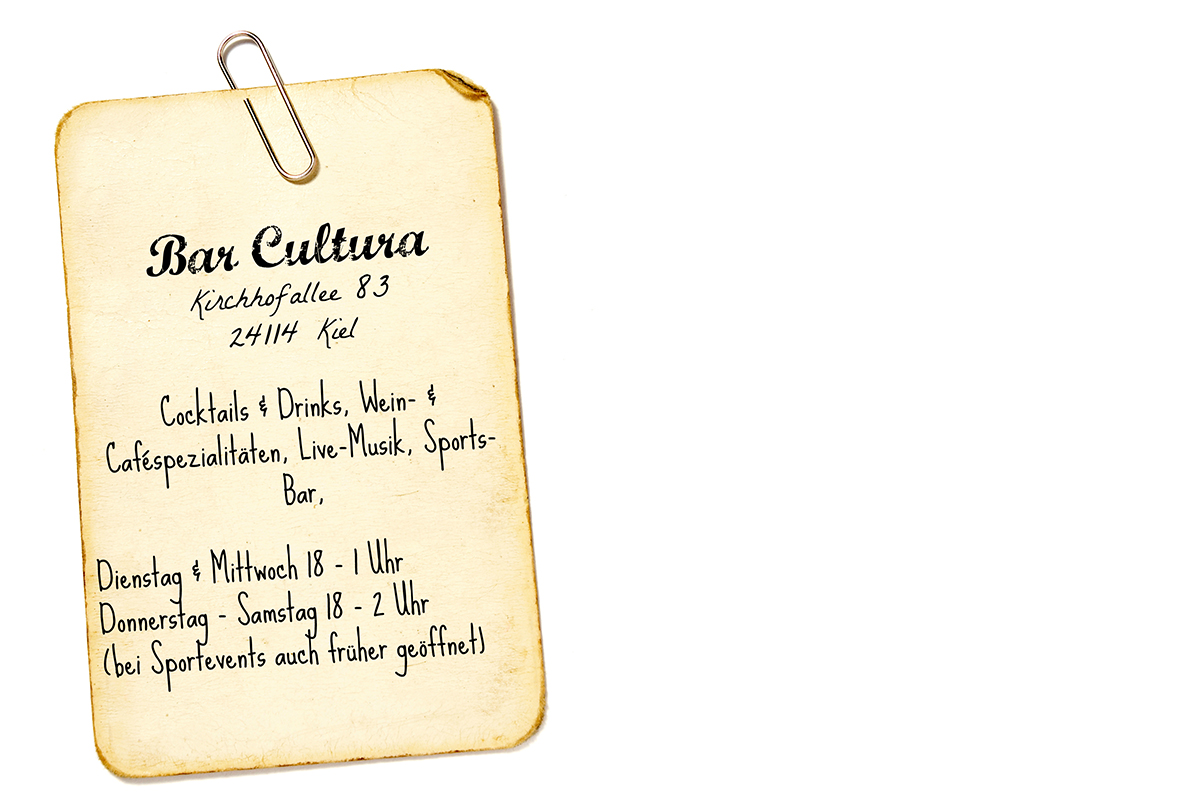 Bar Cultura
Kirchhofallee 83
24114 Kiel
Cocktails & Drinks, Wein- &
Caféspezialitäten, Live-Musik, Sports-
Bar,
Dienstag & Mittwoch 18 - 1 Uhr
Donnerstag - Samstag 18 - 2 Uhr
(bei Sportevents auch früher geöffnet)